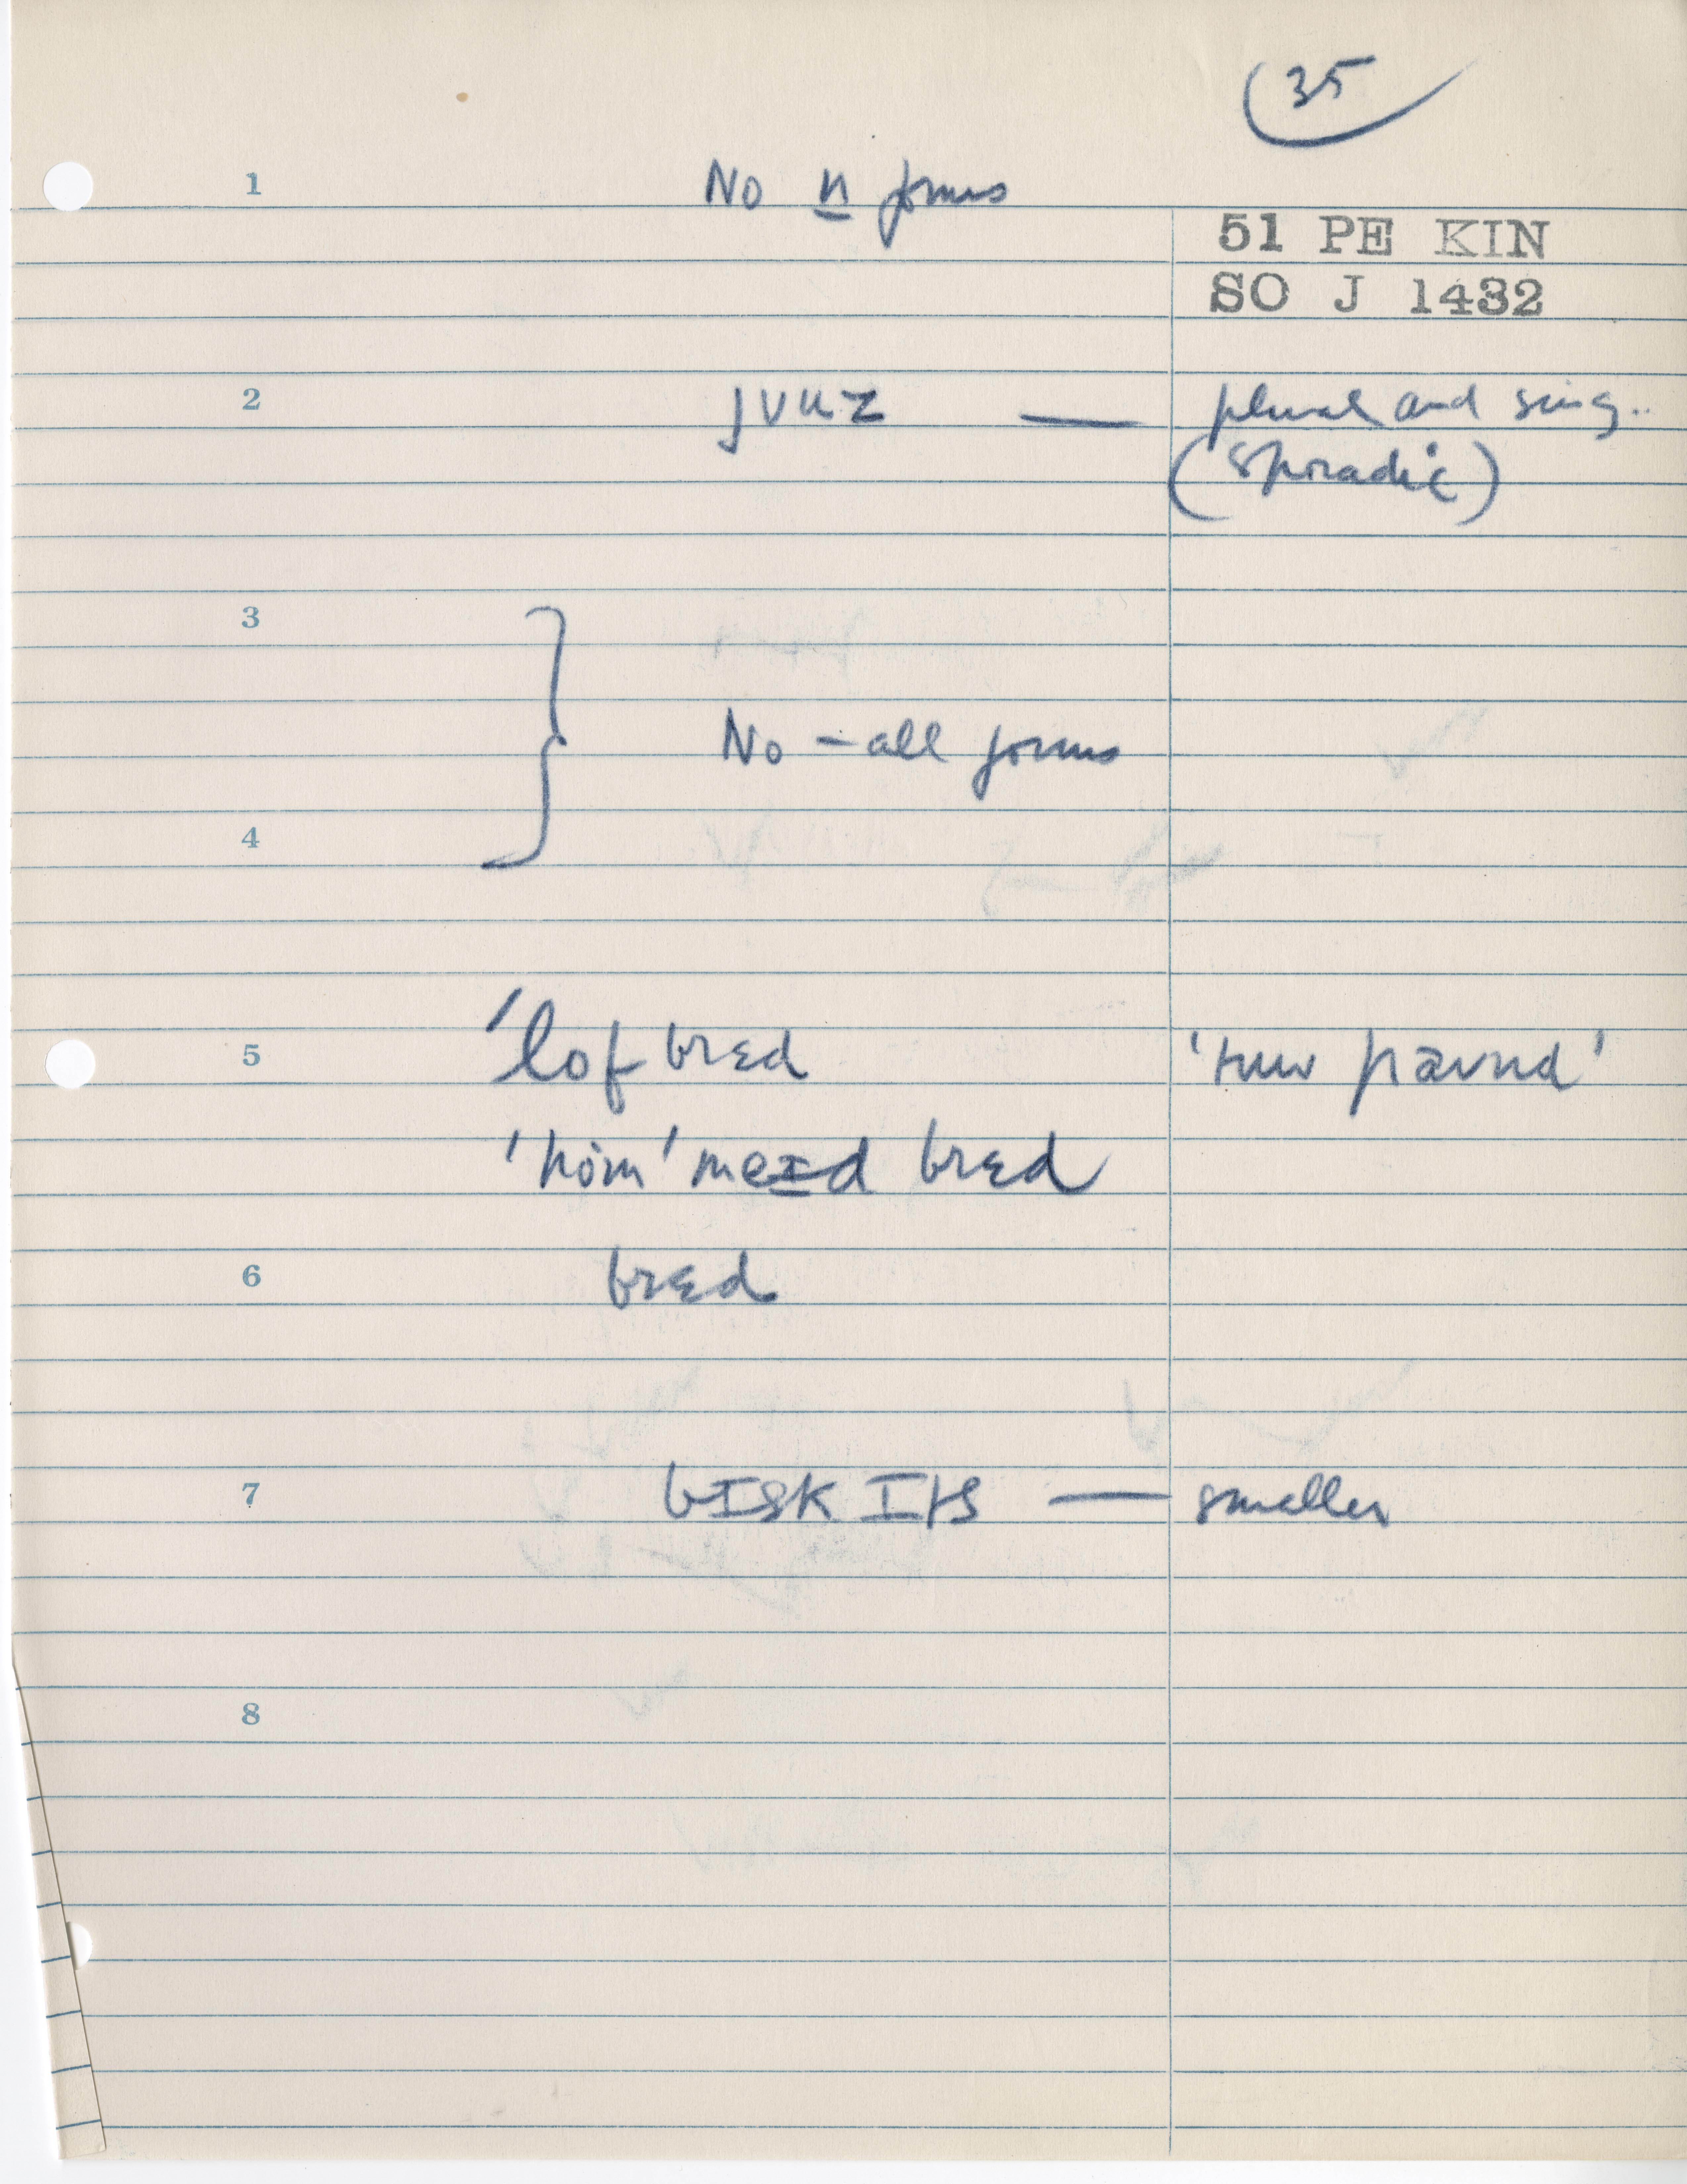 35
1 No n forms
51 PE KIN
SO J 1432
2 juuz — plural and sing..
(sporadic)
3
No – all forms
4
5 'lof brɛd 'tuw paʊnd'
'hom' meɪd brɛd
6 brɛd
7 bɪskɪts — smaller
8